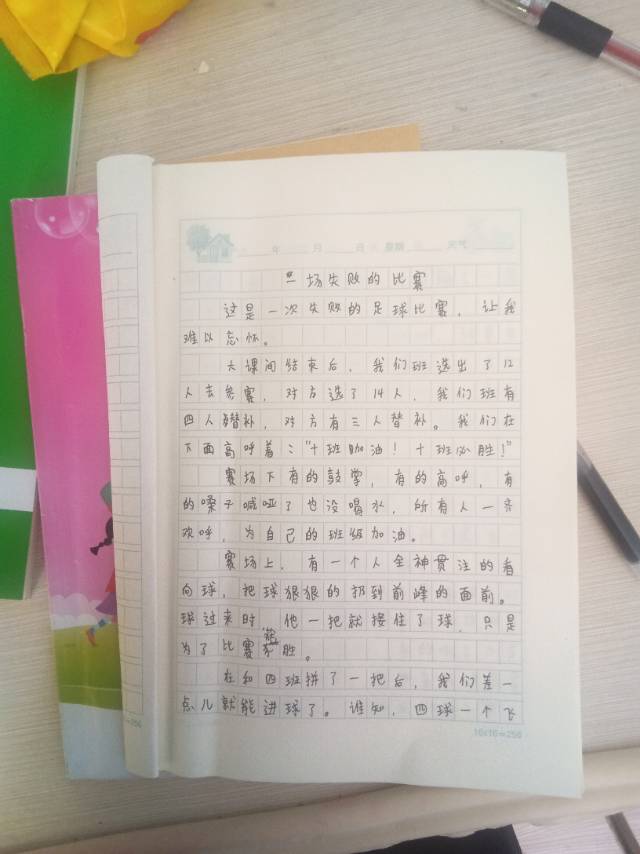 年 月 日 星期 天气
一场失败的比赛
这是一次失败的足球比赛，让我
难以忘怀。
大课间结束后，我们班选出了12
人去参赛，对方选了14人，我们班有
四人替补，对方有三人替补。我们在
下面高呼着：“十班加油！十班必胜！”
赛场下有的鼓掌，有的高呼，有
的嗓子喊哑了也没喝水，所有人一齐
欢呼，为自己的班级加油。
赛场上，有一个人全神贯注的看
向球，把球狠狠的扔到前峰的面前。
球过来时，他一把就接住了球，只是
为了比赛获胜。
在和四班拼了一把后，我们差一
点儿就能进球了。谁知，四球一个飞
16x16=256
=256